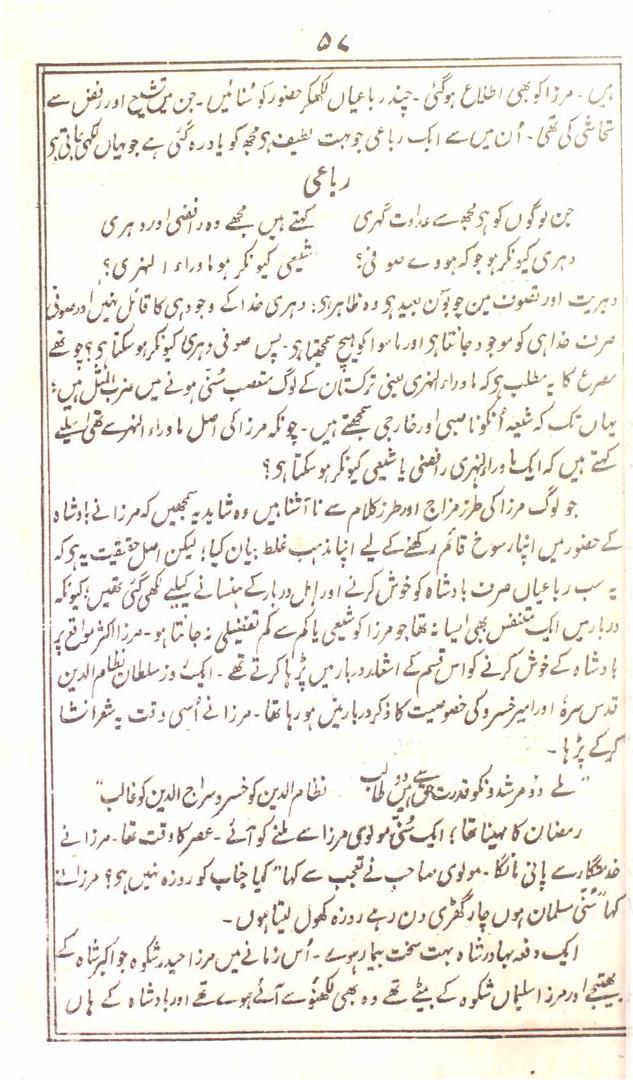 ۵۷
ہیں - مرزا کو بھی اطلاع ہوگئی - چند رباعیاں لکھکر حضور کو سُنائیں - جن میں تشیع اور رفض سے
تحاشی کی تھی - اُن میں سے ایک رباعی جو بہت لطیف ہی مجھ کو یاد رہ گئی ہے جو یہاں لکھی جاتی ہی
رباعی
جن لوگوں کو ہی مجھ سے عداوت گہری کہتے ہیں مجھے وہ رافضی اور دہری
دہری کیونکر ہو جو کہ ہووے صوفی؟ شیعی کیونکر ہو ماوراء النہری؟
دہریت اور تصوف مین جو بَون بعید ہی وہ ظاہر ہی؛ دہری خدا کے وجود ہی کا قائل نہیں اور صوفی
صرف خدا ہی کو موجود جانتا ہی اور ماسوا کو ہیچ سمجھتا ہی - پس صوفی دہری کیونکر ہوسکتا ہی؟ چوتھے
مصرع کا یہ مطلب ہی کہ ماوراء النہری یعنی ترکستان کے لوگ متعصب سُنّی ہونے میں ضرب المثل ہیں؛
یہاں تک کہ شیعہ اُنکو ناصبی اور خارجی سمجھتے ہیں - چونکہ مرزا کی اصل ماوراء النہر سے تھی اسلیے
کہتے ہیں کہ ایک ماوراء النہری رافضی یا شیعی کیونکر ہوسکتا ہی؟
جو لوگ مرزا کی طرز مزاج اور طرز کلام سے ناآشنا ہیں وہ شاید یہ سمجھیں کہ مرزا نے بادشاہ
کے حضور میں اپنا رسوخ قائم رکھنے کے لیے اپنا مذہب غلط بیان کیا؛ لیکن اصل حقیقت یہ ہی کہ
یہ سب رباعیاں صرف بادشاہ کو خوش کرنے اور اہل دربار کے ہنسانے کیلیے لکھی گئی تھیں؛ کیونکہ
دربار میں ایک متنفس بھی ایسا نہ تھا جو مرزا کو شیعی یا کم سے کم تفضیلی نہ جانتا ہو - مرزا اکثر مواقع پر
بادشاہ کے خوش کرنے کو اس قسم کے اشعار دربار میں پڑہا کرتے تھے - ایک روز سلطان نظام الدین
قدس سرہٗ اور امیر خسرو کی خصوصیت کا ذکر دربار میں ہو رہا تھا - مرزا نے اُسی وقت یہ شعر انشا
کر کے پڑہا -
"ملے دو مرشدونکو قدرت حق سے ہیں دو طالب نظام الدین کو خسرو سراج الدین کو غالب"
رمضان کا مہینا تھا؛ ایک سُنّی مولوی مرزا سے ملنے کو آئے - عصر کا وقت تھا - مرزا نے
خدمتگار سے پانی مانگا - مولوی صاحب نے تعجب سے کہا "کیا جناب کو روزہ نہیں ہی؟ مرزا نے
کہا "سُنّی مسلمان ہوں چار گھڑی دن رہے روزہ کھول لیتا ہوں -
ایک دفعہ بہادر شاہ بہت سخت بیمار ہوے - اُس زمانے میں مرزا حیدر شکوہ جو اکبر شاہ کے
بھتیجے اور مرزا سلیماں شکوہ کے بیٹے تھے وہ بھی لکھنؤ سے آئے ہوے تھے اور بادشاہ کے ہاں